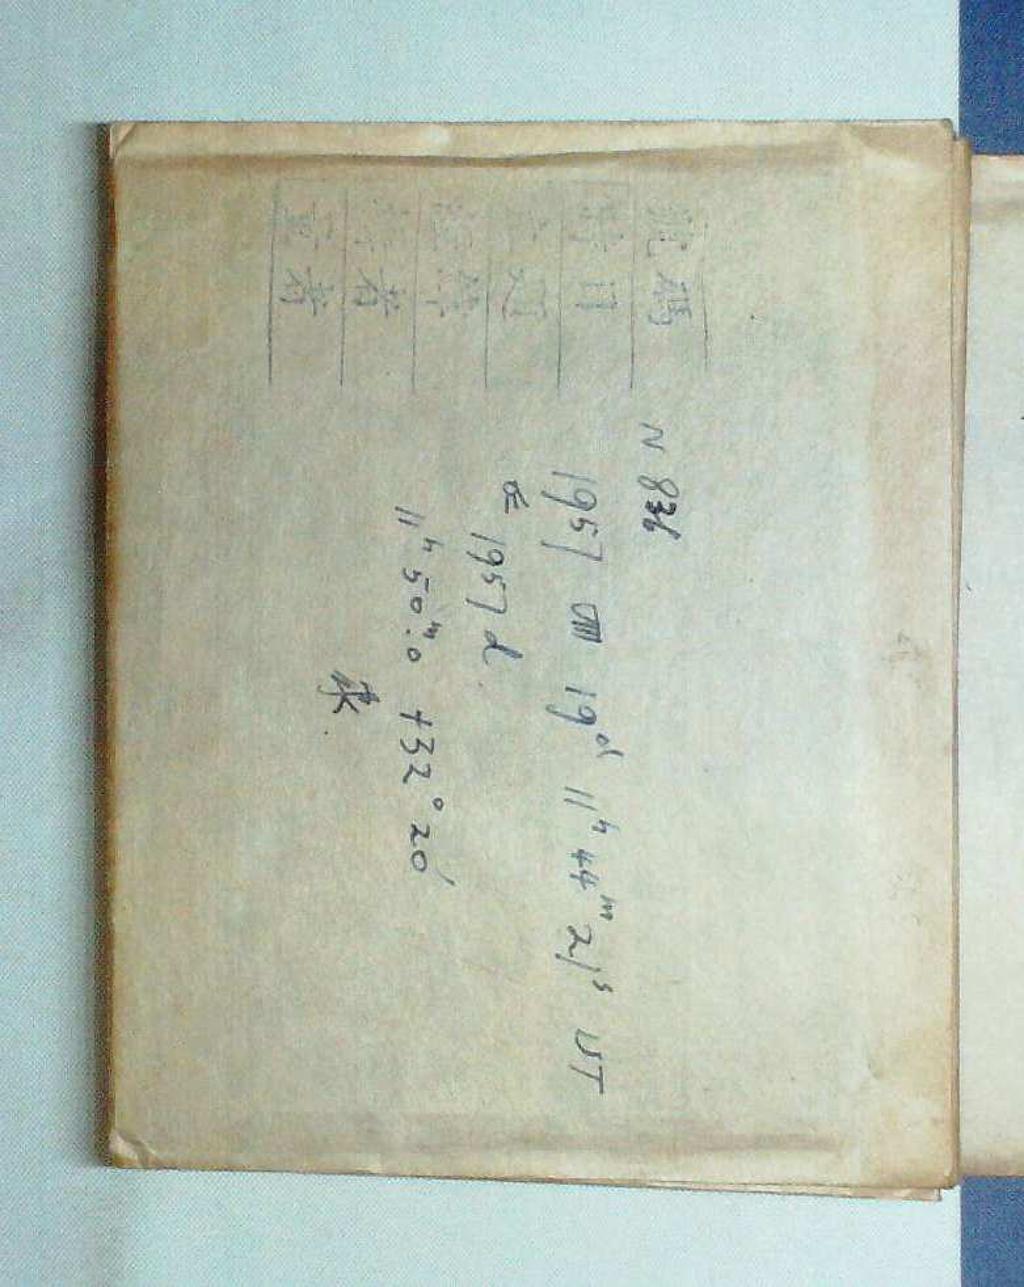 號碼 N 836
時日 1957 VIII 19ᵈ 11ʰ 44ᵐ 21ˢ UT
1957 d
11ʰ 50ᵐ.0 +32° 20′
者
量者